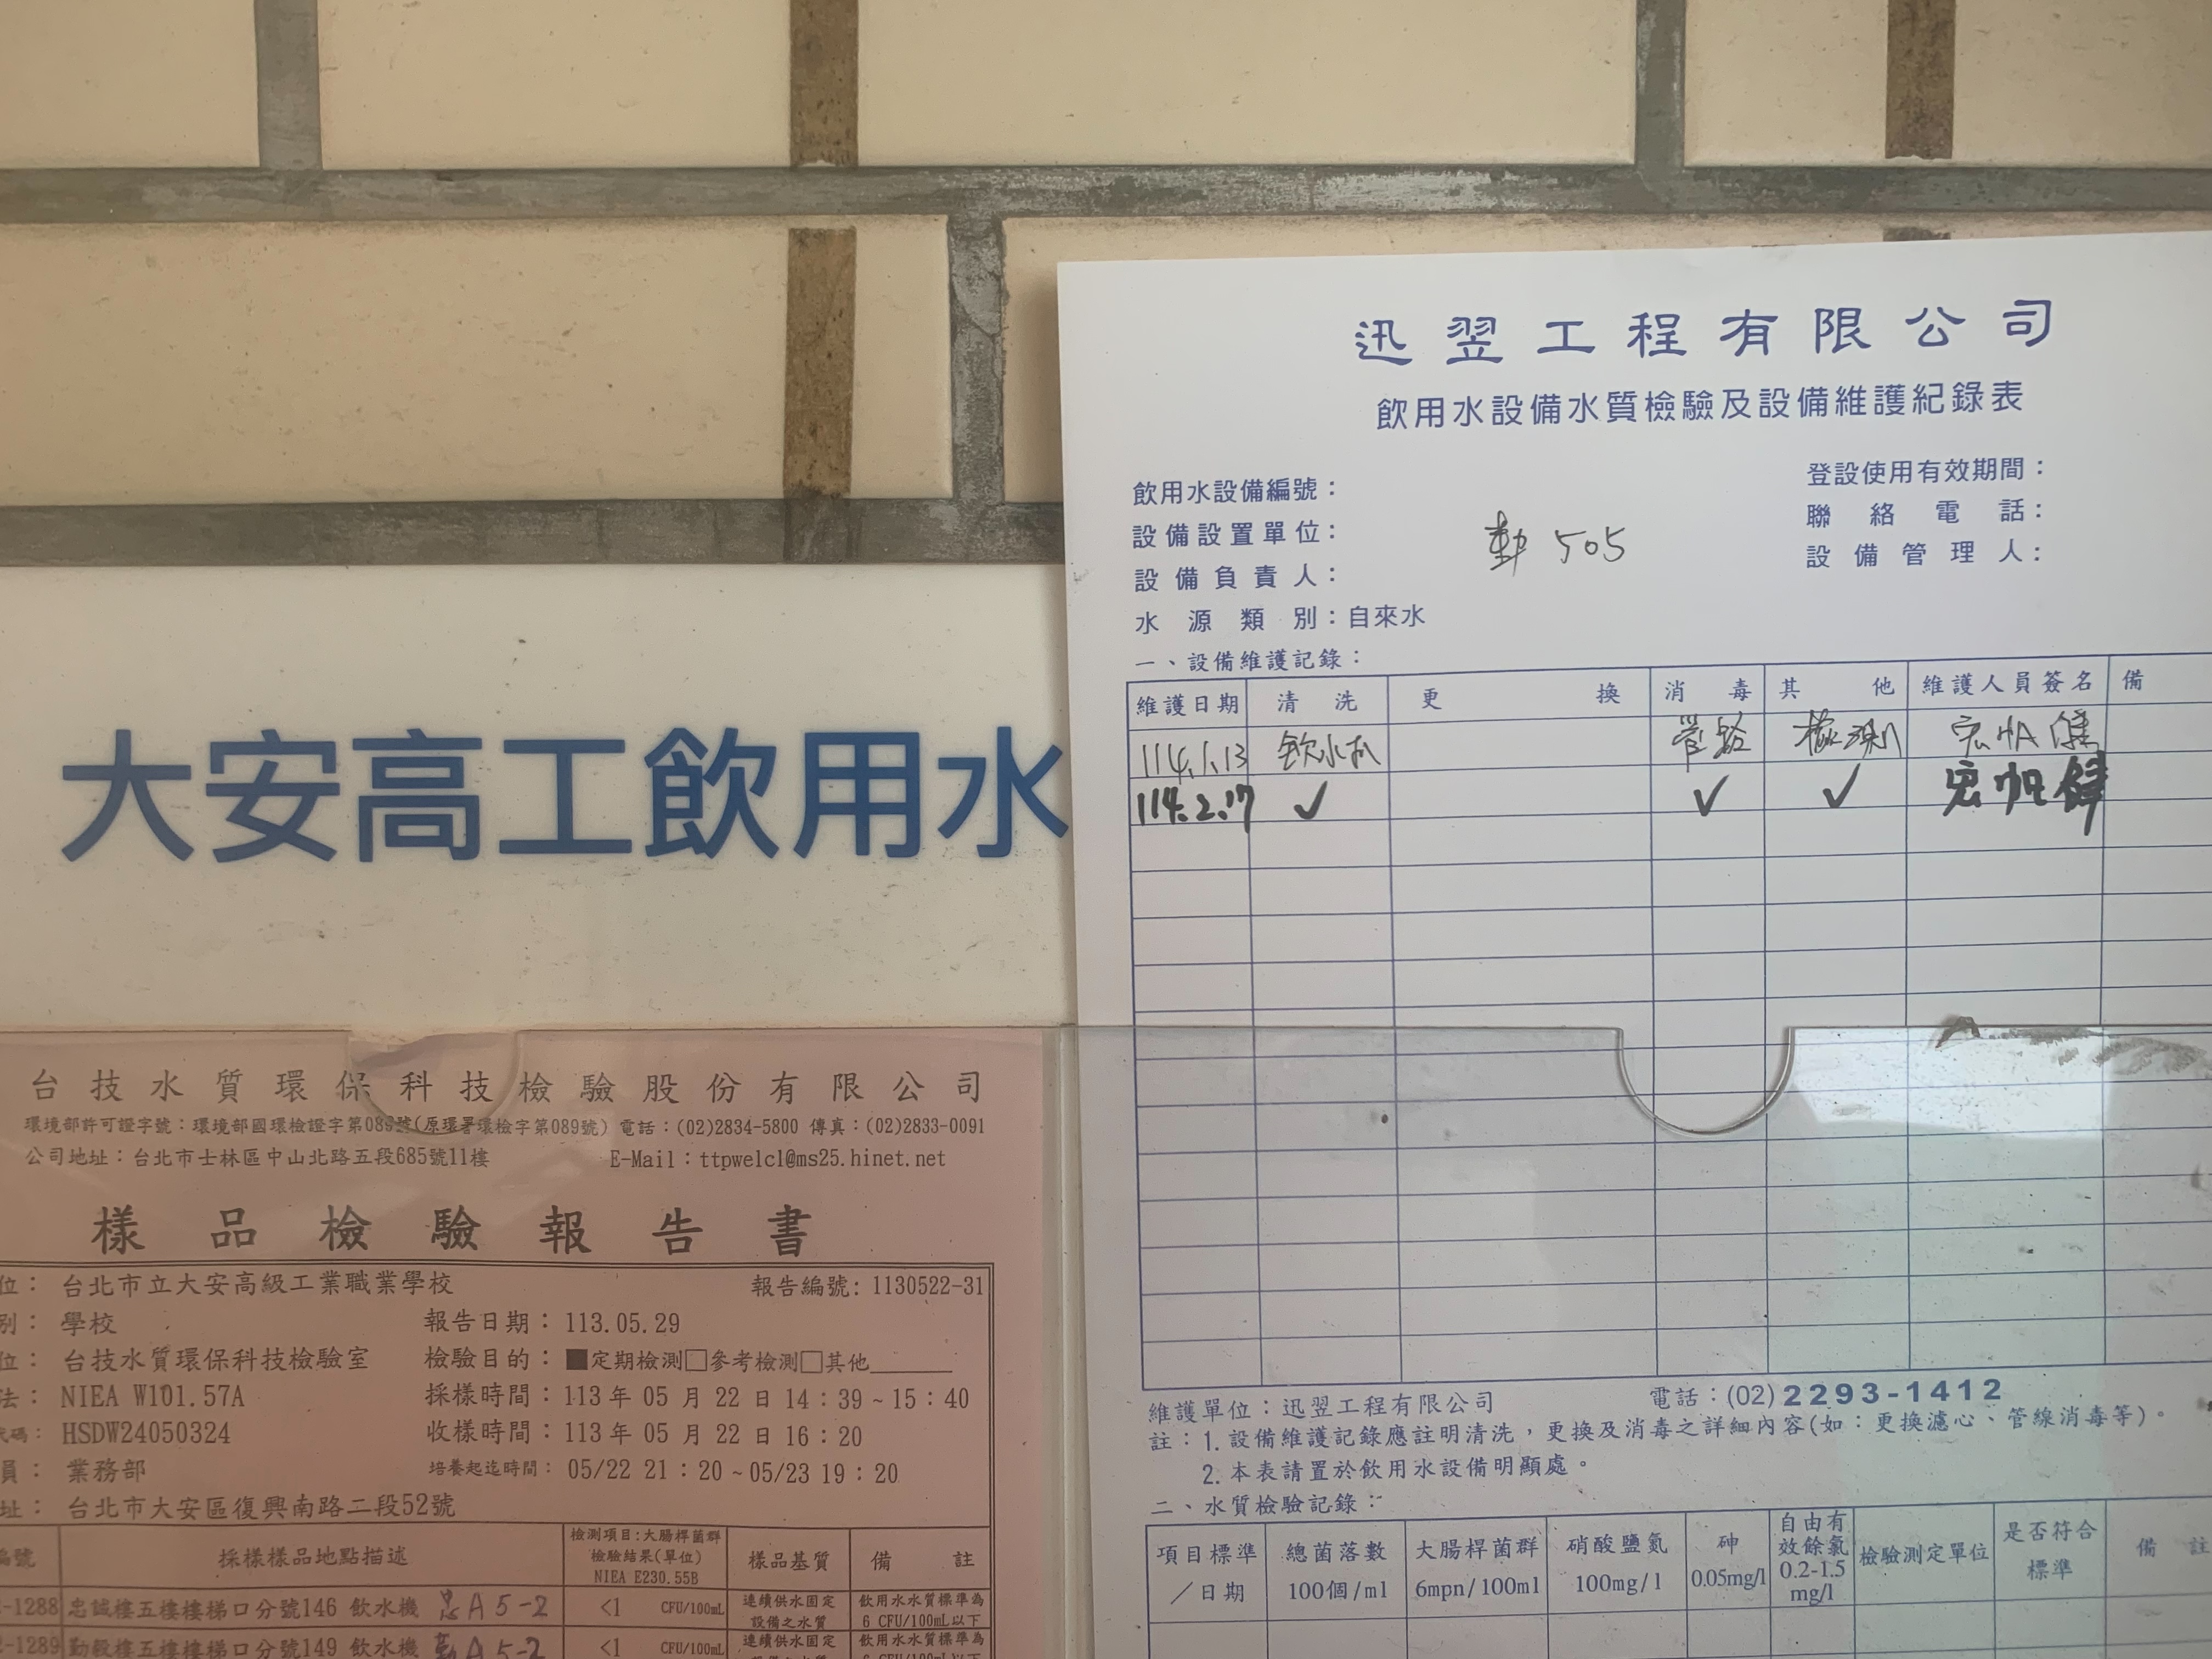 迅翌工程有限公司
飲用水設備水質檢驗及設備維護紀錄表
飲用水設備編號：
登設使用有效期間：
設備設置單位：
勤 505
聯絡電話：
設備負責人：
設備管理人：
水源類別：自來水
一、設備維護記錄：
維護日期 清洗 更換 消毒 其他 維護人員簽名 備
114.1.13 飲水机 管路 檢測
114.2.17 ✓ ✓ ✓
維護單位：迅翌工程有限公司 電話：(02)2293-1412
註：1.設備維護記錄應註明清洗，更換及消毒之詳細內容(如：更換濾心、管線消毒等)。
2.本表請置於飲用水設備明顯處。
二、水質檢驗記錄：
項目標準／日期 總菌落數 100個/ml 大腸桿菌群 6mpn/100ml 硝酸鹽氮 100mg/l 砷 0.05mg/l 自由有效餘氯 0.2-1.5 mg/l 檢驗測定單位 是否符合標準 備註
大安高工飲用水
台技水質環保科技檢驗股份有限公司
環境部許可證字號：環境部國環檢證字第089號(原環署環檢字第089號) 電話：(02)2834-5800 傳真：(02)2833-0091
公司地址：台北市士林區中山北路五段685號11樓 E-Mail：ttpwelcl@ms25.hinet.net
樣品檢驗報告書
位：台北市立大安高級工業職業學校 報告編號: 1130522-31
別：學校 報告日期：113.05.29
位：台技水質環保科技檢驗室 檢驗目的：■定期檢測□參考檢測□其他
法：NIEA W101.57A 採樣時間：113 年 05 月 22 日 14：39～15：40
代碼：HSDW24050324 收樣時間：113 年 05 月 22 日 16：20
員：業務部 培養起迄時間：05/22 21：20～05/23 19：20
址：台北市大安區復興南路二段52號
編號 採樣樣品地點描述 檢測項目:大腸桿菌群 檢驗結果(單位) NIEA E230.55B 樣品基質 備註
-1288 忠誠樓五樓樓梯口分號146 飲水機 忠A5-2 <1 CFU/100mL 連續供水固定設備之水質 飲用水水質標準為 6 CFU/100mL以下
-1289 勤毅樓五樓樓梯口分號149 飲水機 勤A5-2 <1 CFU/100mL 連續供水固定 飲用水水質標準為